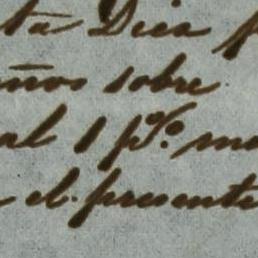 ta Diez p
años sobre
al 1 p%. me
el presente